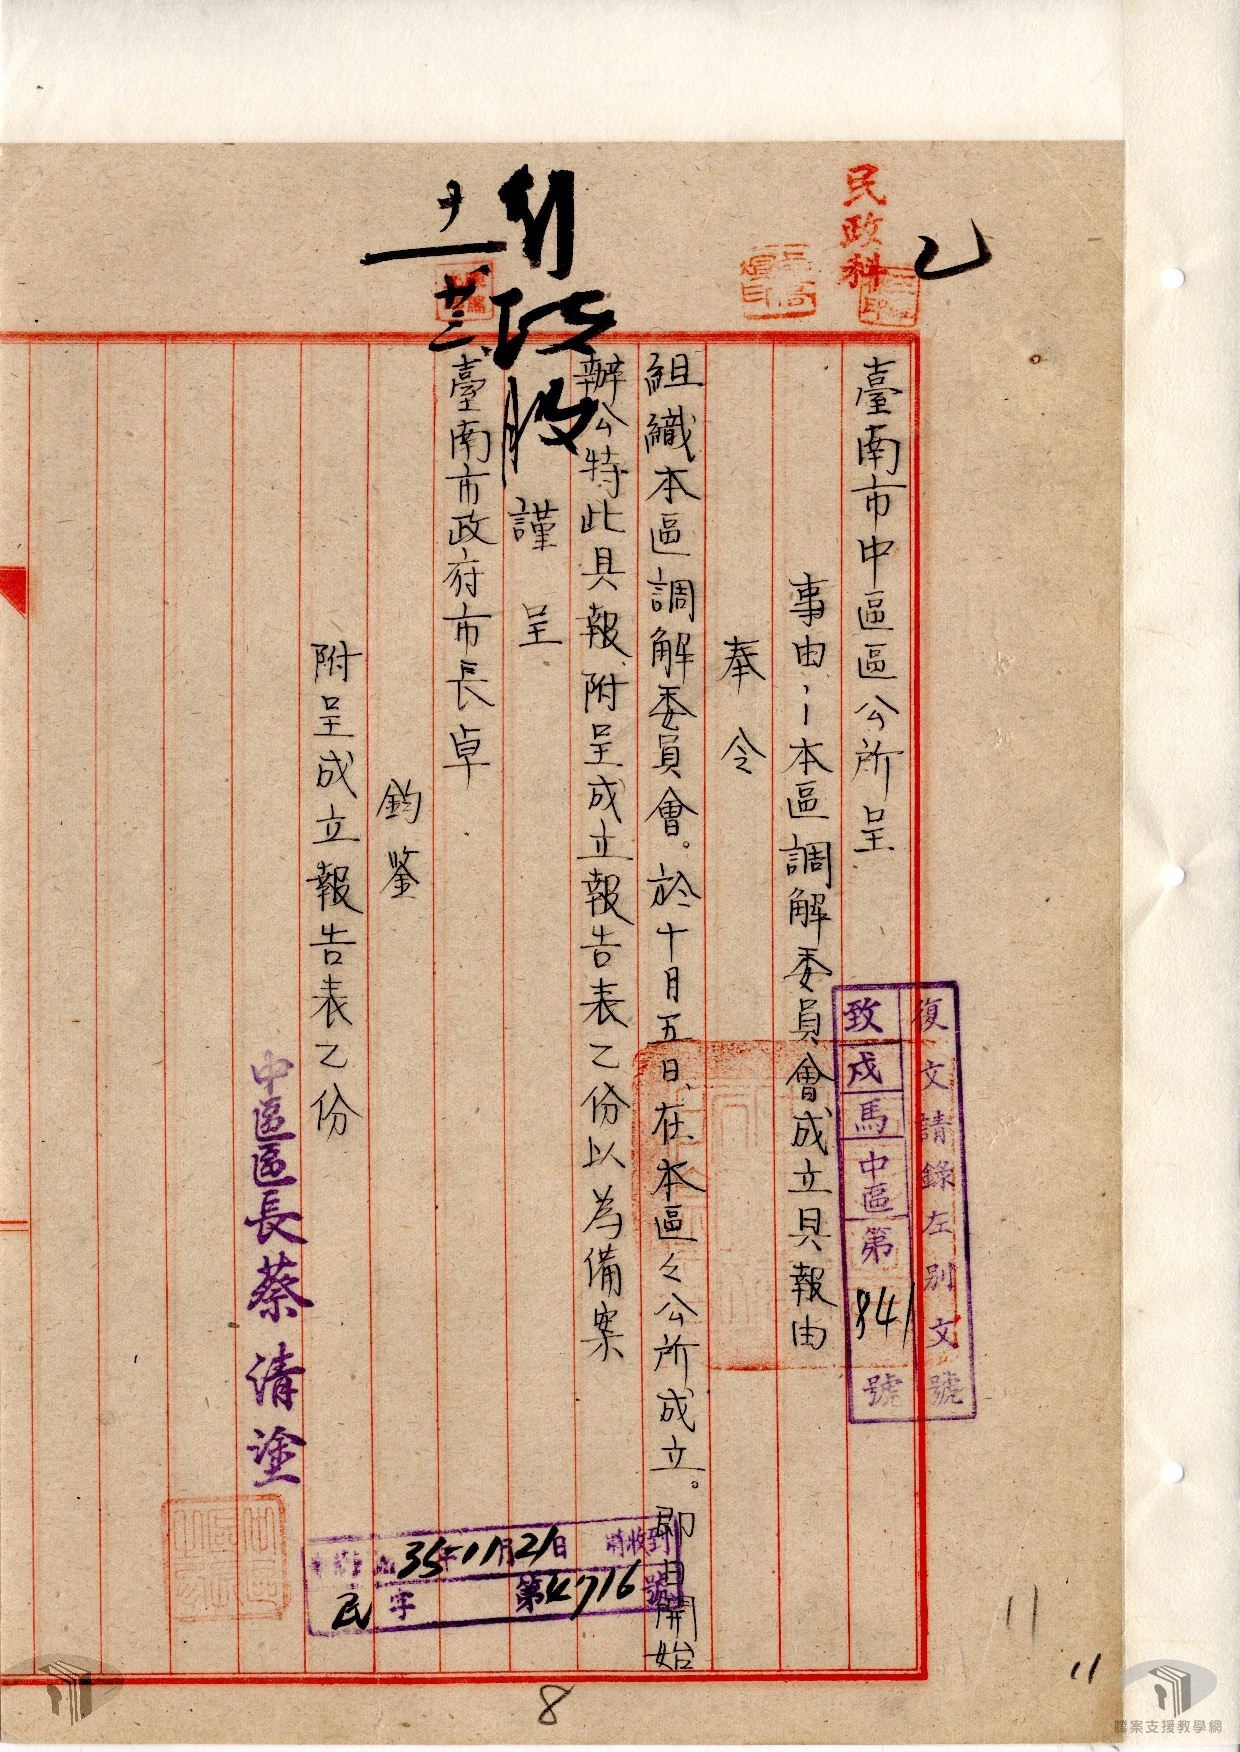 民政科
乙
臺南市中區區公所呈
復文請錄左別文號
致戍馬中區第841號
事由:本區調解委員會成立具報由
奉令
組織本區調解委員會。於十月五日、在本區々公所成立。即日開始
辦公特此具報、附呈成立報告表乙份以為備案
謹呈
行政股
臺南市政府市長卓
鈞鑒
附呈成立報告表乙份
中區區長蔡清塗
35年11月21日 收到
民字第4716號
8
11
11
檔案支援教學網